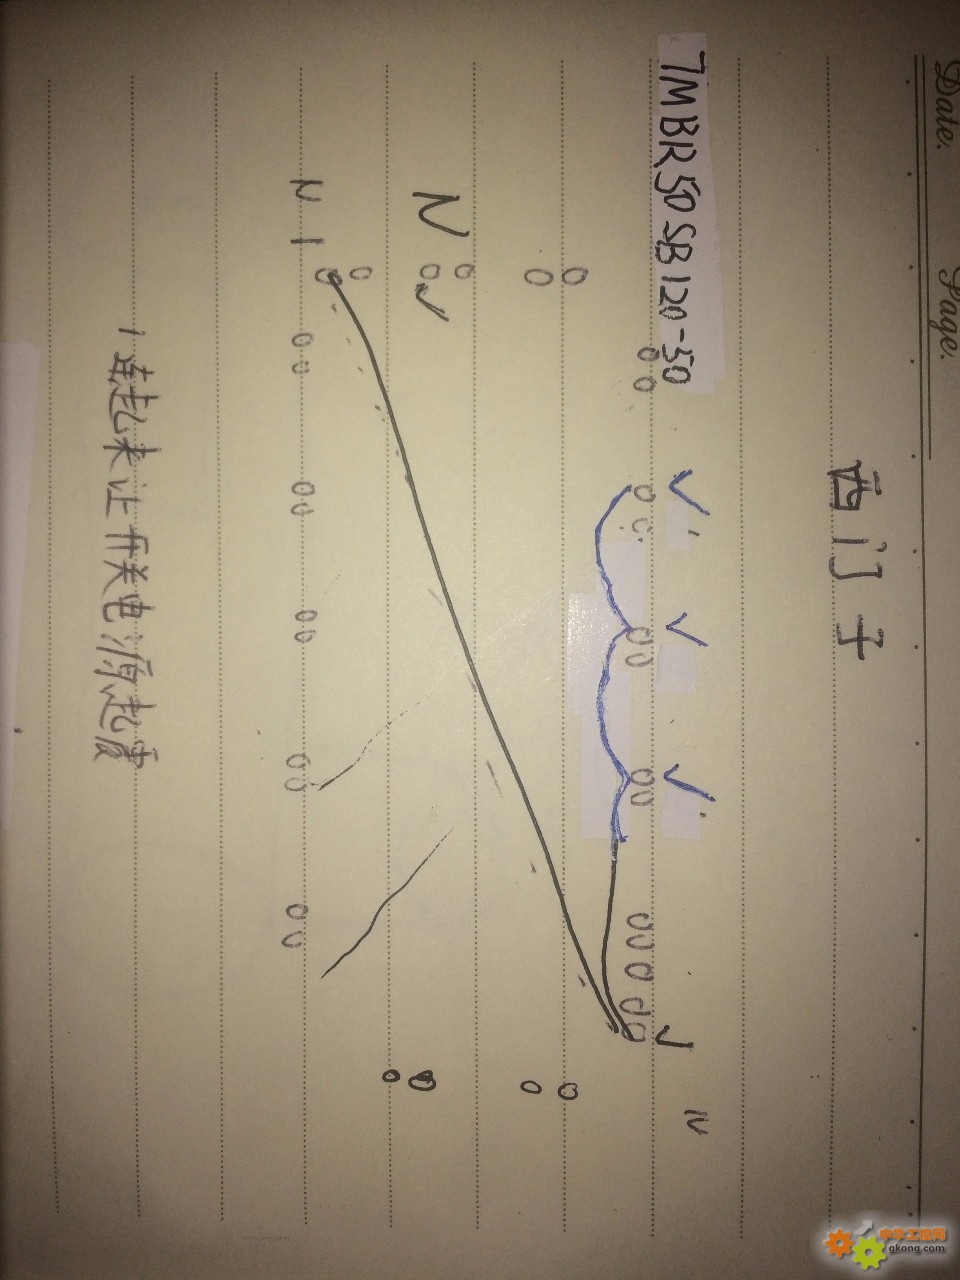 Date.
Page.
西门子
7MBR50SB120-50
N
N
N1
1连起来让开关电源起震
中华工控网
gkong.com